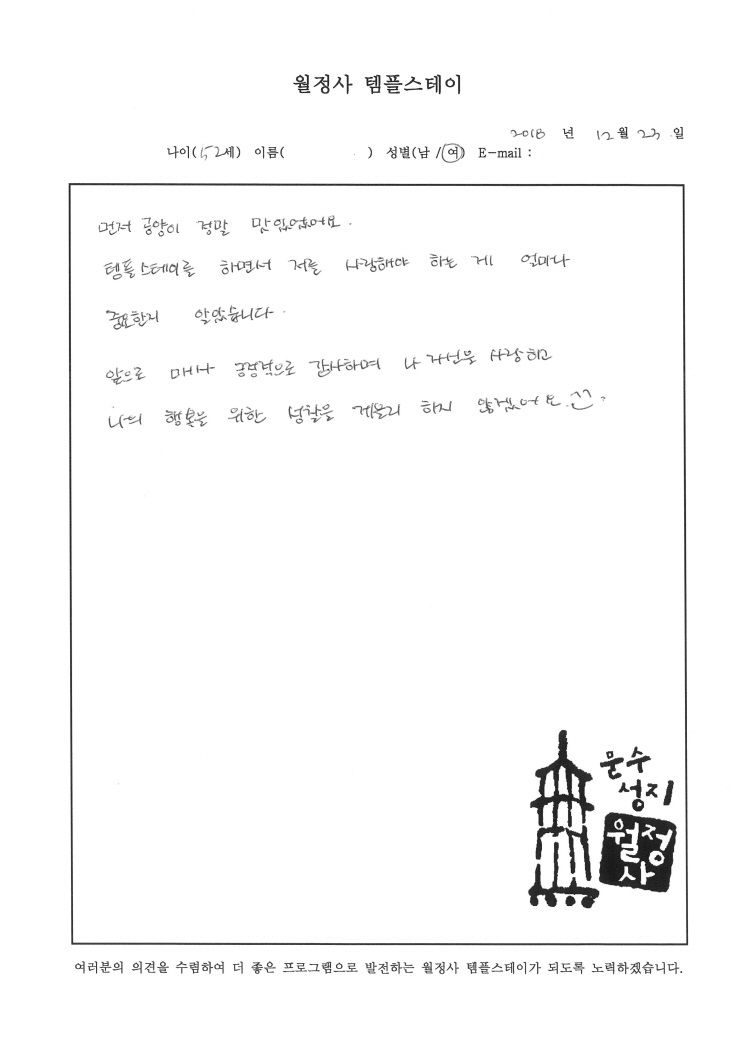 월정사 템플스테이
2018 년 12 월 23 일
나이(52세) 이름( ) 성별(남 / 여) E-mail :
먼저 공양이 정말 맛있었어요.
템플스테이를 하면서 저를 사랑해야 하는 게 얼마나
중요한지 알았습니다.
앞으로 매사 긍정적으로 감사하며 나 자신을 사랑하고
나의 행복을 위한 성찰을 게을리 하지 않겠어요.
문수
성지
월정
사
여러분의 의견을 수렴하여 더 좋은 프로그램으로 발전하는 월정사 템플스테이가 되도록 노력하겠습니다.